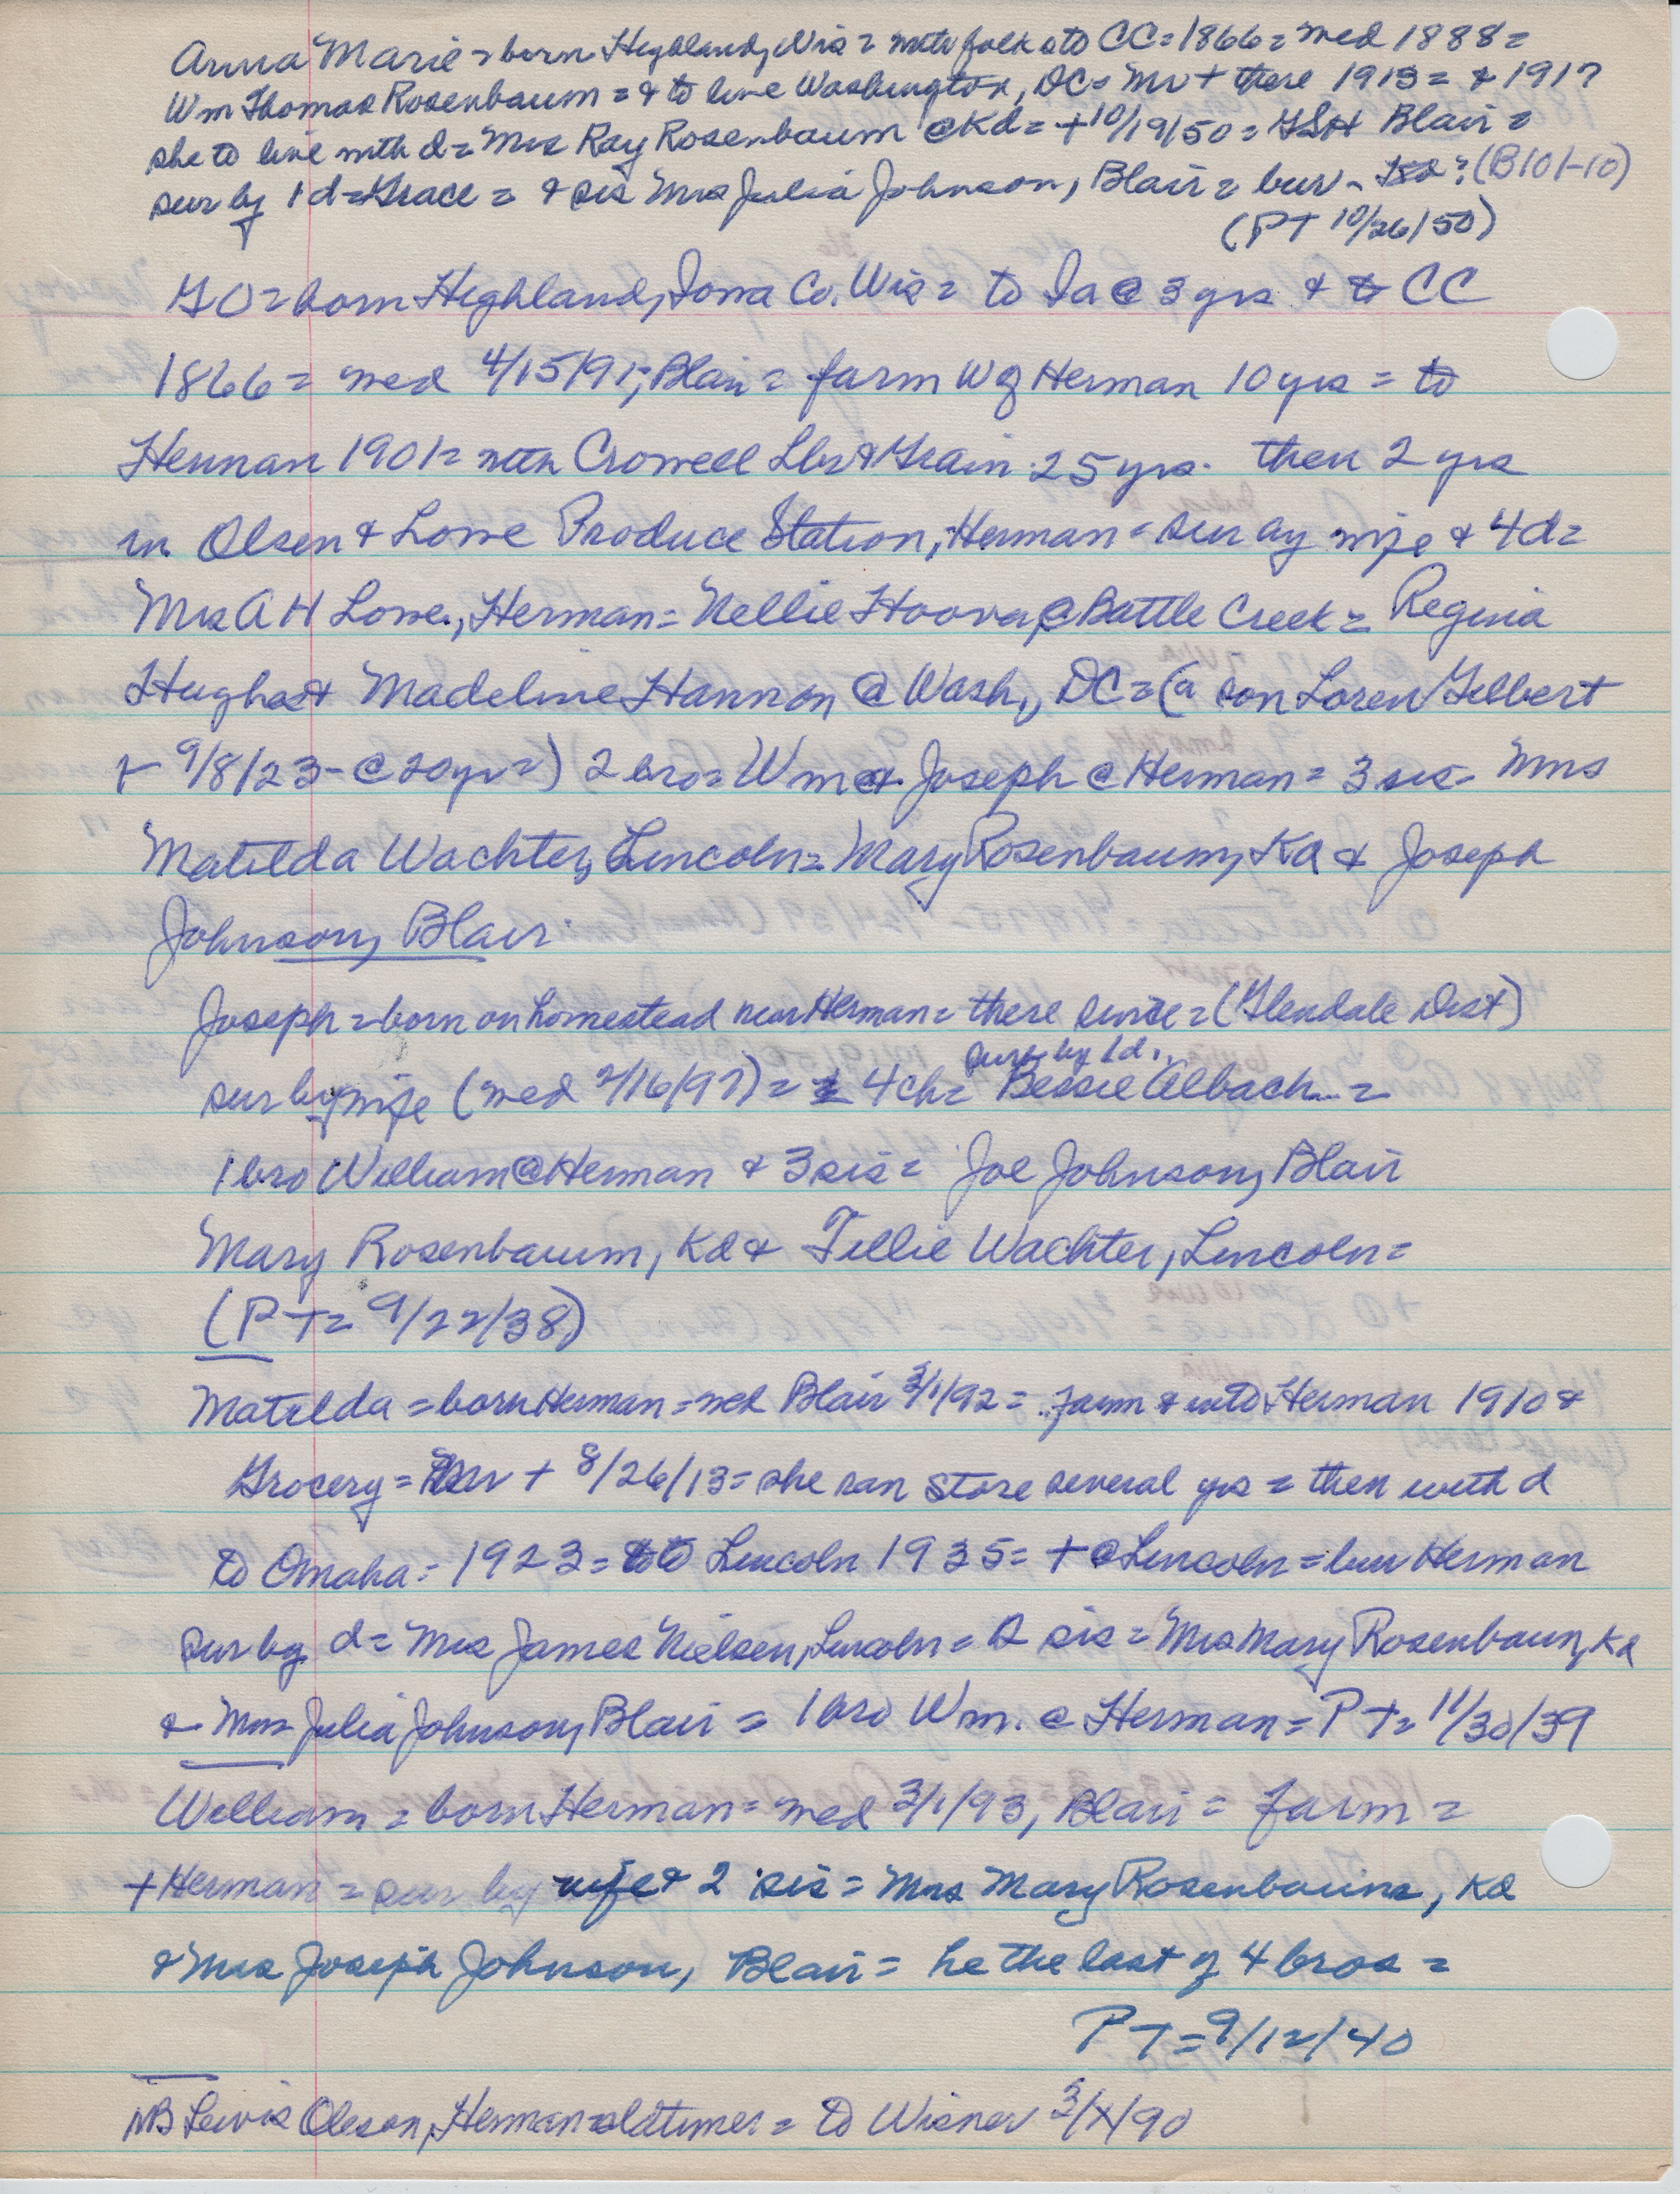 Anna Marie = born Highland, Wis = with folks to CC = 1866 = med 1888 =
Wm Thomas Rosenbaum = & to live Washington, DC = Mr + there 1913 = & 1917
she to live with d = Mrs Ray Rosenbaum @ Kd = + 10/19/50 = Blair =
sur by 1 d = Grace = & sis Mrs Julia Johnson, Blair = bur - (B101-10)
(PT 10/26/50)
GO = born Highland, Iowa Co. Wis = to Ia @ 3 yrs & to CC
1866 = med 4/15/91, Blair = farm W of Herman 10 yrs = to
Herman 1901 = with Crowell Lbr & Grain 25 yrs. then 2 yrs
in Olsen & Lowe Produce Station, Herman = sur by wife & 4 d =
Mrs A H Lowe, Herman = Nellie Hoover @ Battle Creek = Regina
Hughes & Madeline Hannon @ Wash., DC = (a son Loren Gilbert
+ 9/8/23 - @ 20 yr =) 2 bro = Wm & Joseph @ Herman = 3 sis = Mms
Matilda Wachter, Lincoln = Mary Rosenbaum, Kd & Joseph
Johnson, Blair
Joseph = born on homestead near Herman = there since = (Glendale Dist)
sur by 1 d.,
sur by wife (med 2/16/97) = 4 ch = Bessie Albach =
1 bro William @ Herman & 3 sis = Joe Johnson, Blair
Mary Rosenbaum, Kd & Tillie Wachter, Lincoln =
(PT = 9/22/38)
Matilda = born Herman = med Blair 3/1/92 = farm & into Herman 1910 &
Grocery = Mr + 8/26/13 = she ran store several yrs = then with d
to Omaha = 1923 = to Lincoln 1935 = + @ Lincoln = bur Herman
sur by d = Mrs James Nielsen, Lincoln = 2 sis = Mrs Mary Rosenbaum, Kd
& Mrs Julia Johnson, Blair = 1 bro Wm. @ Herman = PT = 11/30/39
William = born Herman = med 3/1/93, Blair = farm =
+ Herman = sur by wife & 2 sis = Mrs Mary Rosenbaum, Kd
& Mrs Joseph Johnson, Blair = he the last of 4 bros =
PT = 9/12/40
NB Lewis Oleson, Herman oldtimer = to Wisner 3/x/90